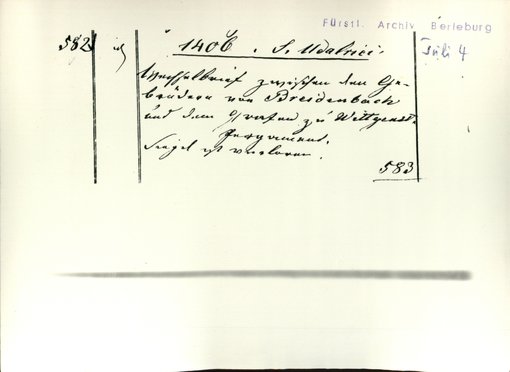 Fürstl. Archiv Berleburg
582 1406. S. Udalrici. Juli 4
Wechselbrief zwischen den Ge-
brüdern von Breidenbach
und dem Grafen zu Wittgenst.
Pergament.
Siegel ist verloren.
583